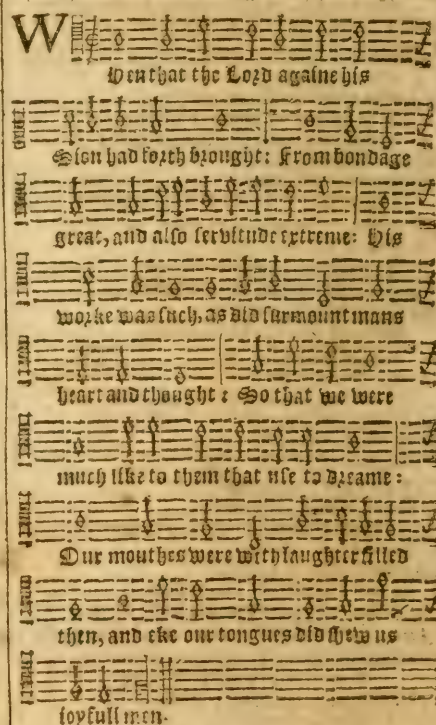 W
hen that the Lord againe his
Sion had forth brought: From bondage
great, and also servitude extreme: His
worke was such, as did surmount mans
heart and thought: So that we were
much like to them that use to dreame:
Our mouthes were with laughter filled
then, and eke our tongues did shew us
joyfull men.